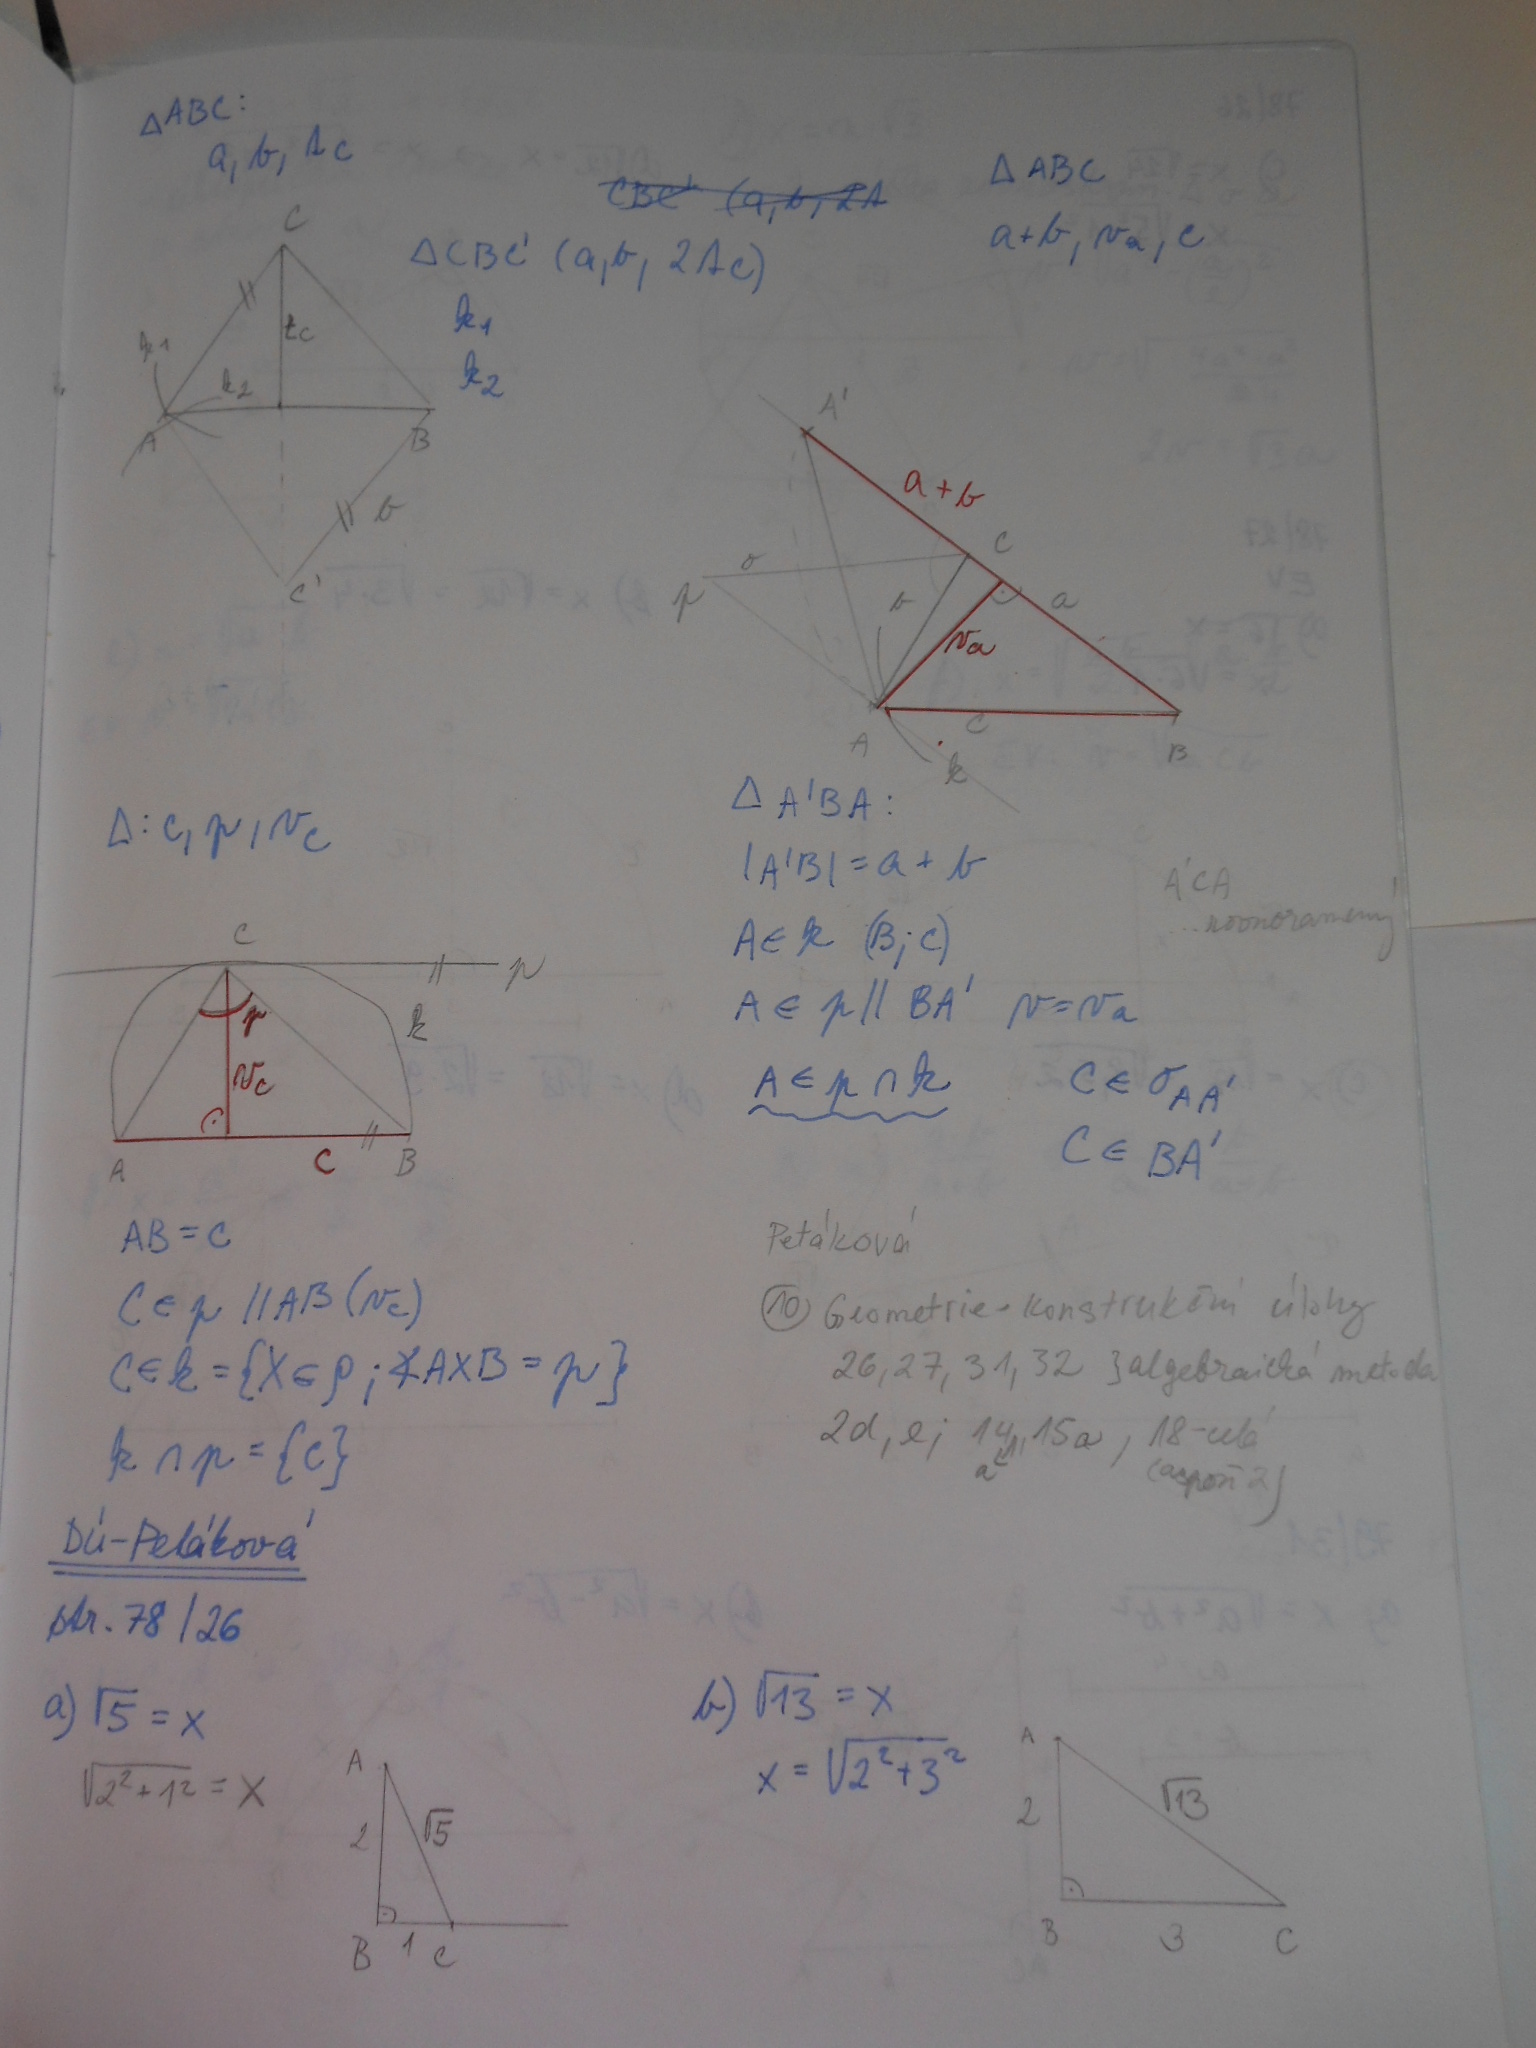 △ABC:
a, b, tc
C
k1
k2
tc
A
B
b
C'
△CBC' (a, b, 2tc)
k1
k2
△ABC
a+b, va, c
A'
a+b
C
o
p
b
va
a
A
c
B
k
△A'BA:
|A'B| = a + b
A ∈ k (B; c)
A ∈ p // BA' v = va
A ∈ p ∩ k
C ∈ σAA'
C ∈ BA'
A'CA
... rovnoramenný
△: c, γ, vc
C
p
k
γ
vc
A
c
B
AB = c
C ∈ p // AB (vc)
C ∈ k = {X ∈ ρ; ∢AXB = γ}
k ∩ p = {C}
Petáková
⑩ Geometrie - konstrukční úlohy
26, 27, 31, 32 } algebraická metoda
2d, e; 14, 15a, 18-celá
(aspoň 2)
DÚ-Petáková
str. 78/26
a) √5 = x
√2²+1² = x
A
2
√5
B
1
C
b) √13 = x
x = √2²+3²
A
2
√13
B
3
C